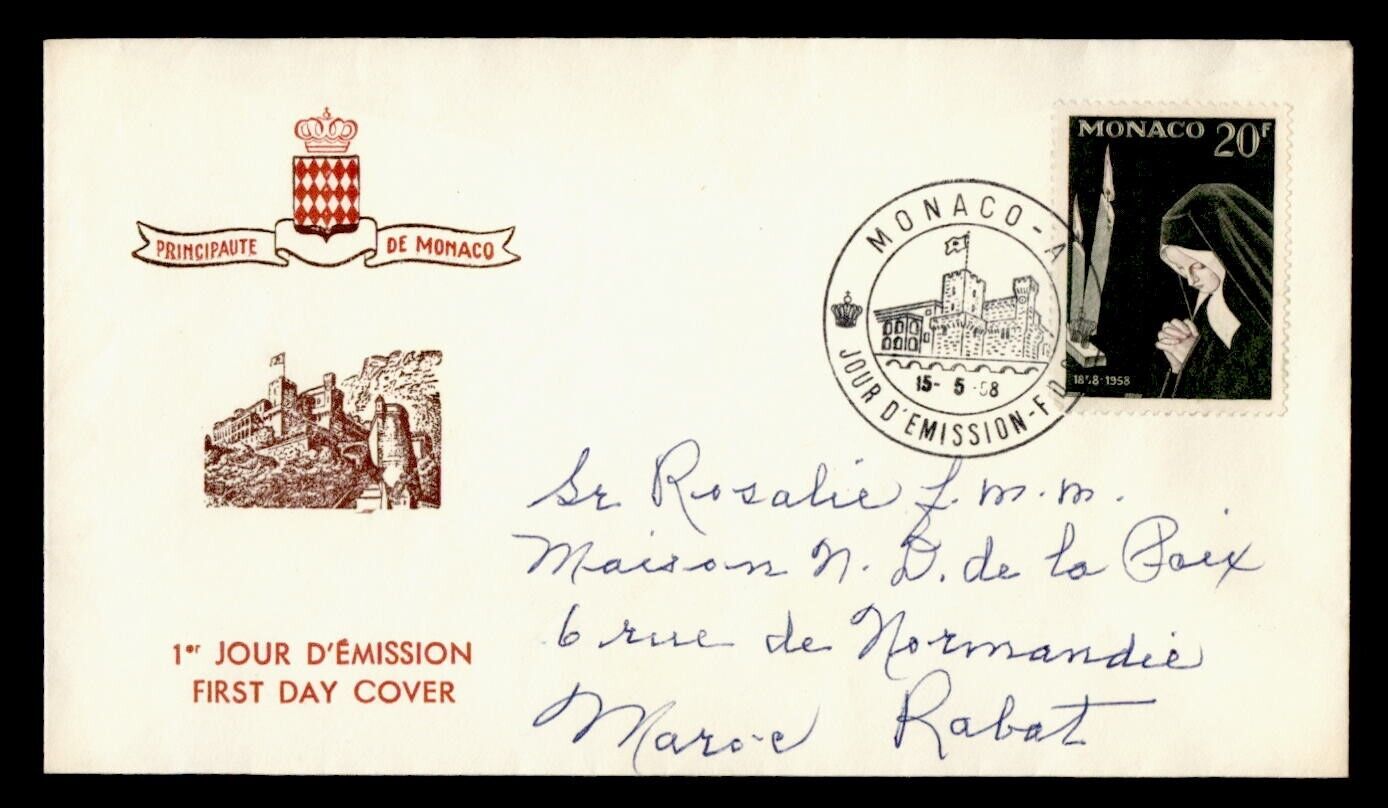 PRINCIPAUTE DE MONACO
MONACO 20F
1858-1958
MONACO-A
15-5-58
JOUR D'EMISSION-F.D.
Sr Rosalie f.m.m.
Maison N. D. de la Paix
6 rue de Normandie
Maroc Rabat
1er JOUR D'ÉMISSION
FIRST DAY COVER